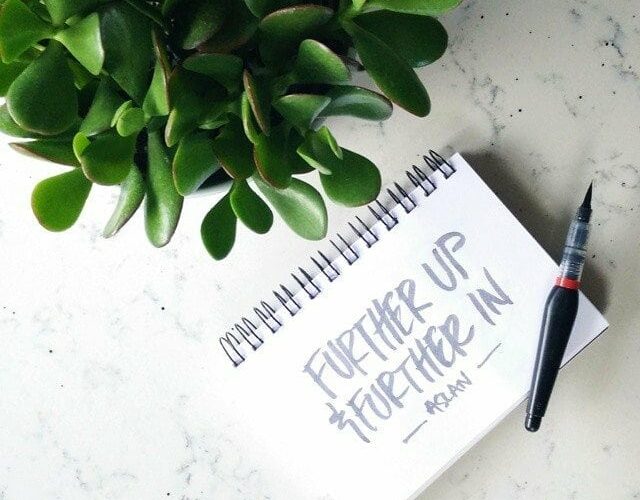 FURTHER UP
& FURTHER IN
— ASLAN —